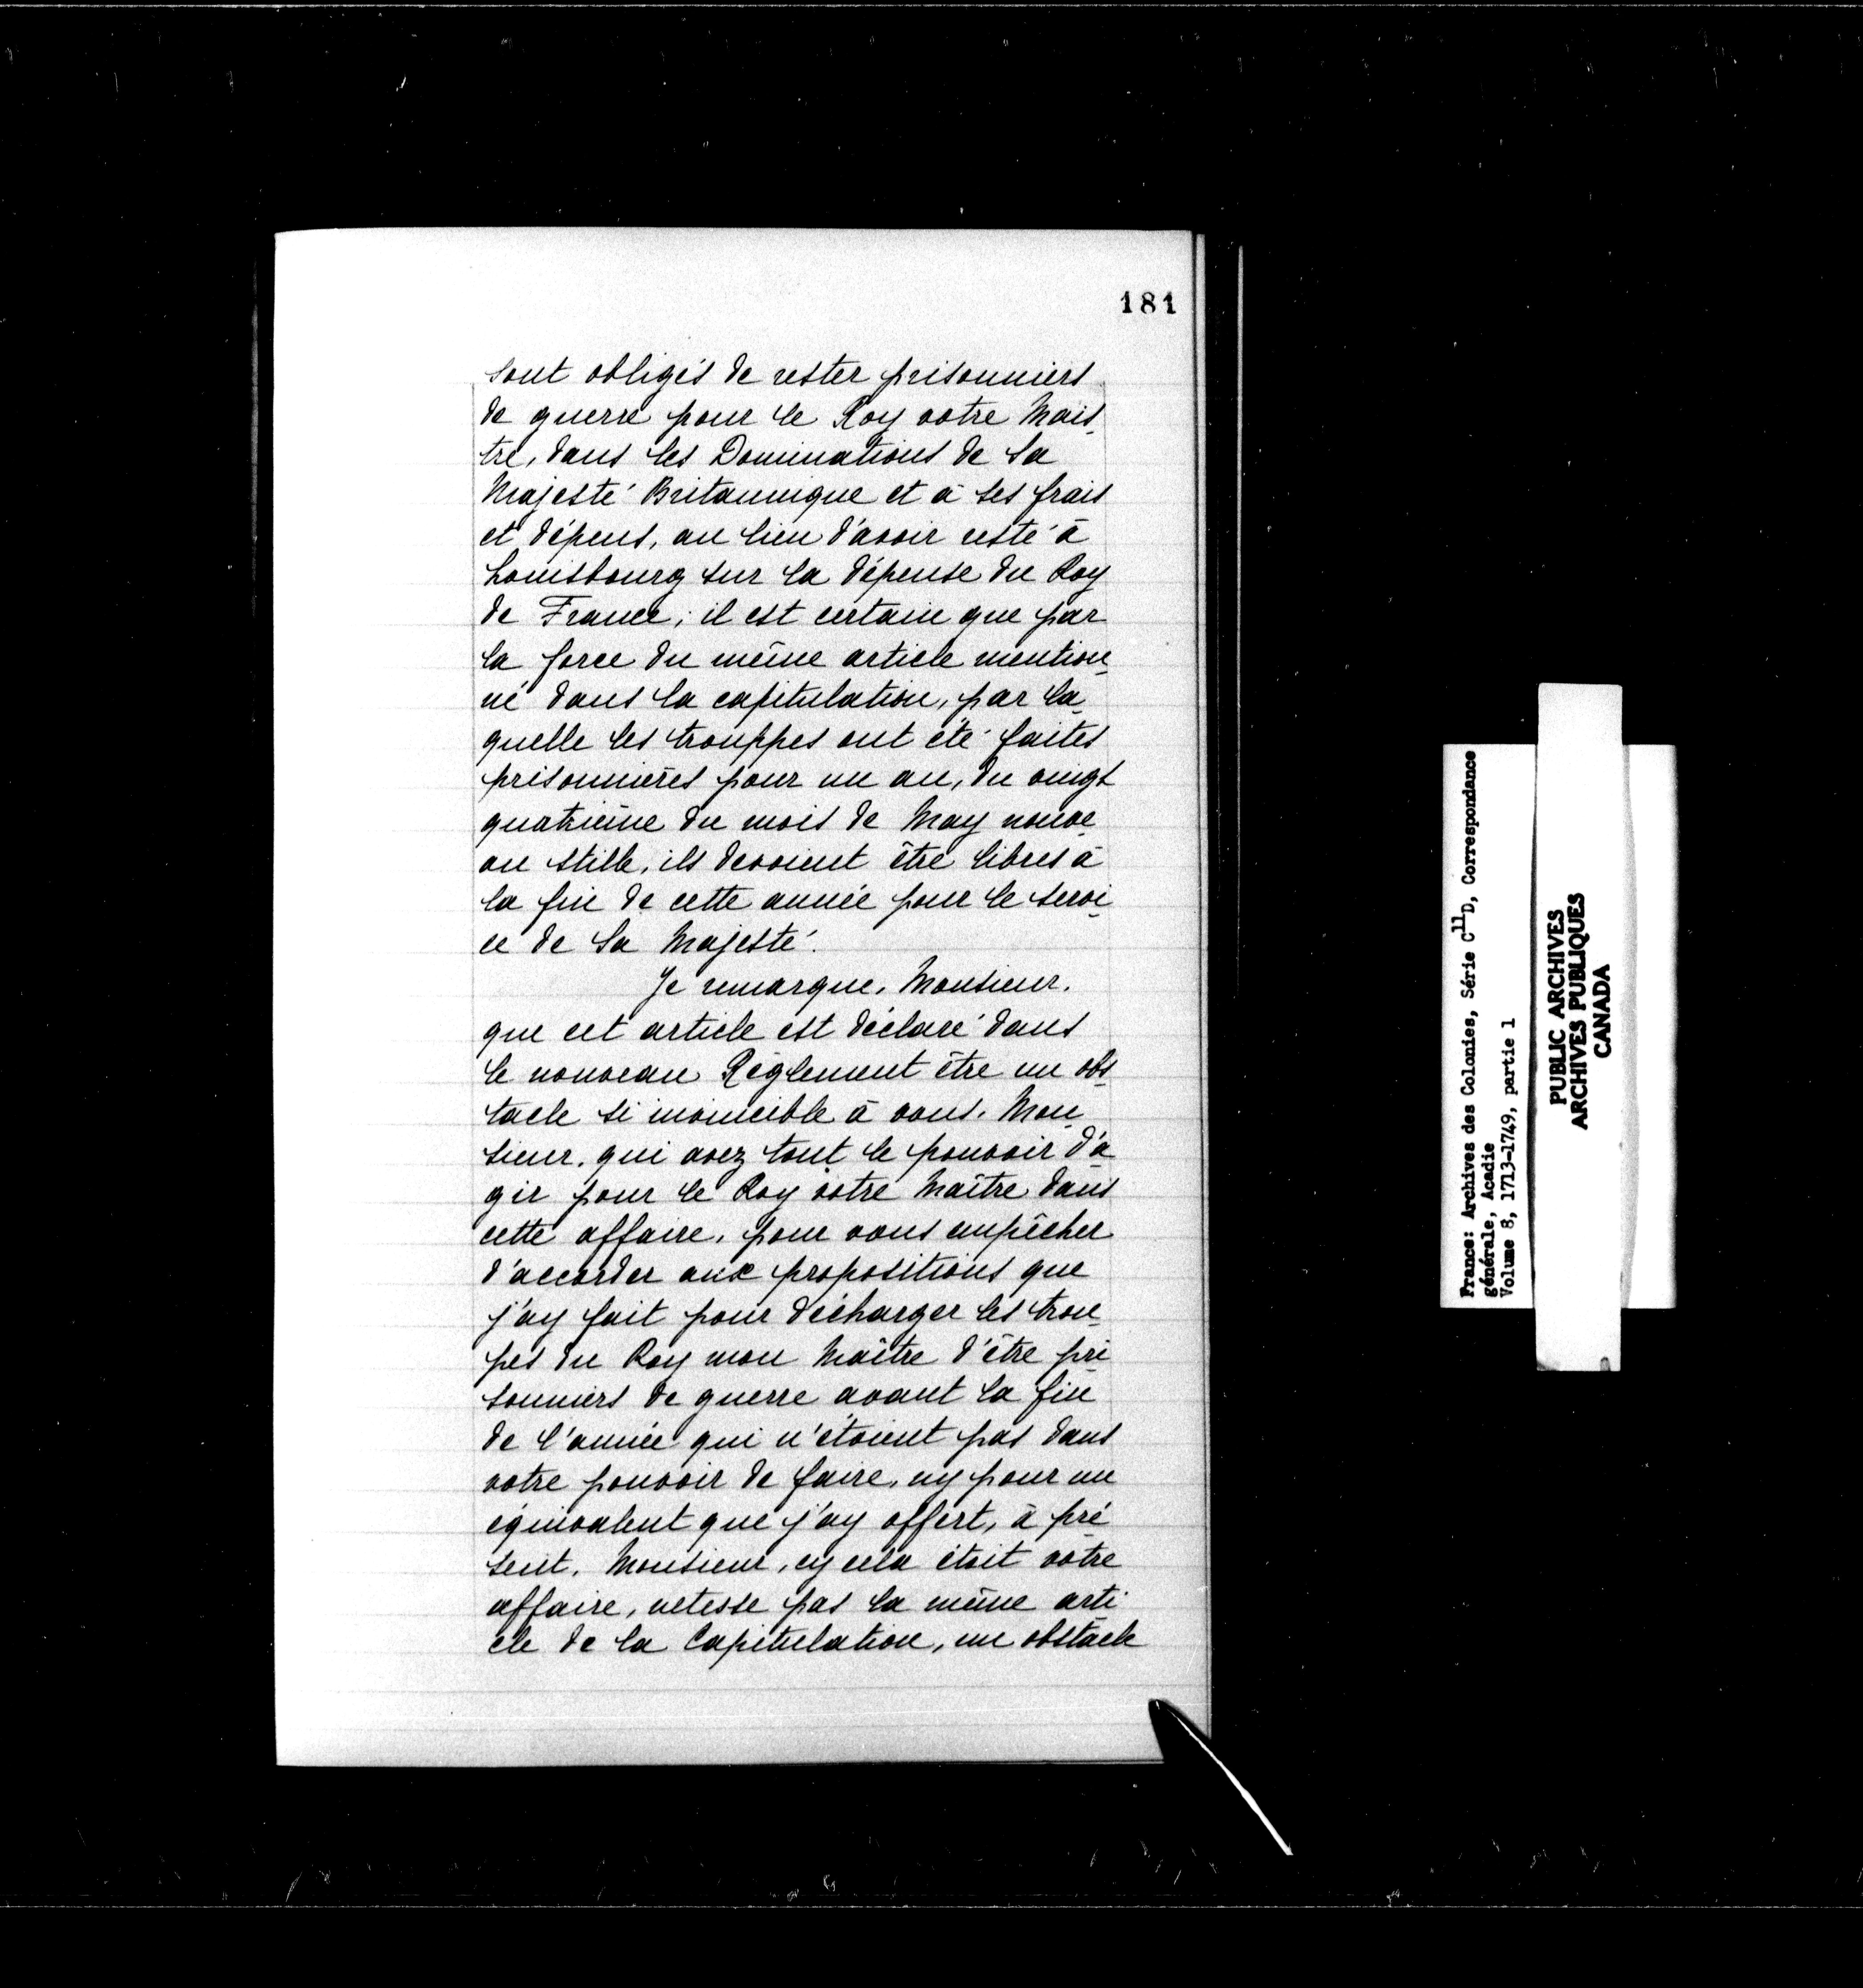 181
sont obligés de rester prisonniers
de guerre pour le Roy votre Mais-
tre, dans les Dominations de Sa
Majesté Britannique et à ses frais
et dépens, au lieu d'avoir resté à
Louisbourg sur la dépense du Roy
de France; il est certain que par
la force du même article mention-
né dans la capitulation, par la-
quelle les trouppes ont été faites
prisonnières pour un an, du vingt
quatrième du mois de May nouve-
au stille, ils devoient être libres à
la fin de cette année pour le servi-
ce de Sa Majesté.
Je remarque, Monsieur,
que cet article est déclaré dans
le nouveau Règlement être un obs-
tacle si invincible à vous, Mon-
sieur, qui avez tout le pouvoir d'a-
gir pour le Roy votre Maître dans
cette affaire, pour vous empêcher
d'accorder aux propositions que
j'ay fait pour décharger les trou-
pes du Roy mon Maître d'être pri-
sonniers de guerre avant la fin
de l'année qui n'étoient pas dans
votre pouvoir de faire, ny pour un
équivalent que j'ay offert, à pré-
sent, Monsieur, cy cela étoit votre
affaire, netesse pas la même arti-
cle de la Capitulation, un obstacle
France: Archives des Colonies, Série C11D, Correspondance
générale, Acadie
Volume 8, 1713-1749, partie 1
PUBLIC ARCHIVES
ARCHIVES PUBLIQUES
CANADA